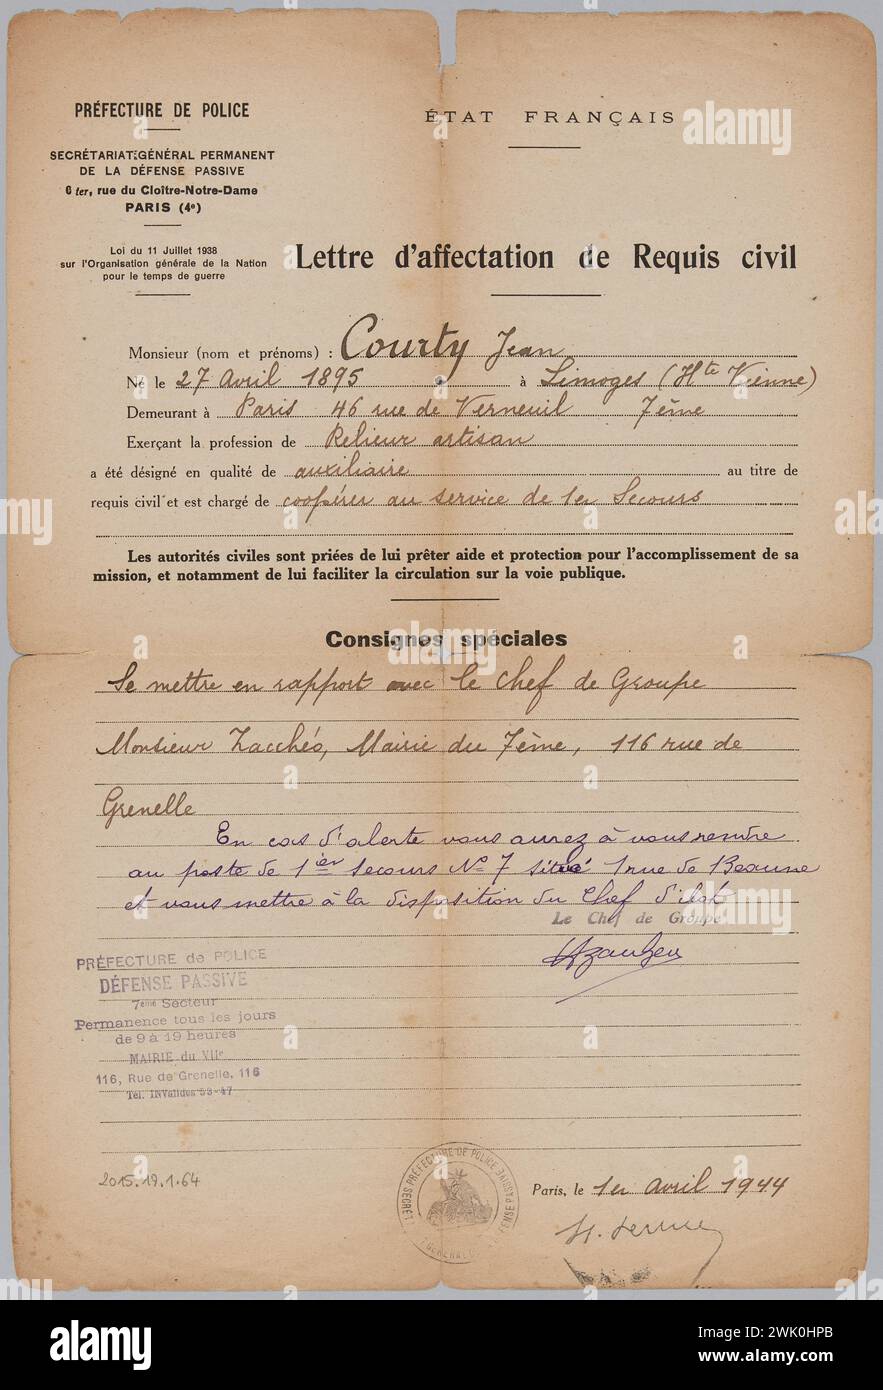 PRÉFECTURE DE POLICE
SECRÉTARIAT GÉNÉRAL PERMANENT
DE LA DÉFENSE PASSIVE
6 ter, rue du Cloître-Notre-Dame
PARIS (4e)
Loi du 11 Juillet 1938
sur l'Organisation générale de la Nation
pour le temps de guerre
ÉTAT FRANÇAIS
Lettre d'affectation de Requis civil
Monsieur (nom et prénoms) : Courty Jean
Né le 27 Avril 1895 à Limoges (Hte Vienne)
Demeurant à Paris 46 rue de Verneuil 7ème
Exerçant la profession de Relieur artisan
a été désigné en qualité de auxiliaire au titre de
requis civil et est chargé de coopérer au service de 1er Secours
Les autorités civiles sont priées de lui prêter aide et protection pour l'accomplissement de sa
mission, et notamment de lui faciliter la circulation sur la voie publique.
Consignes spéciales
Se mettre en rapport avec le Chef de Groupe
Monsieur Zacchéo, Mairie du 7ème, 116 rue de
Grenelle
En cas d'alerte vous aurez à vous rendre
au poste de 1ier Secours No 7 situé 1 rue de Beaune
et vous mettre à la disposition du Chef d'ilot
Le Chef de Groupe
PRÉFECTURE de POLICE
DÉFENSE PASSIVE
7ème Secteur
Permanence tous les jours
de 9 à 19 heures
MAIRIE du VIIe
116, Rue de Grenelle, 116
Tél. INValides 53-47
2015.19.1.64
Paris, le 1er avril 1944
alamy
Image ID: 2WK0HPB
www.alamy.com